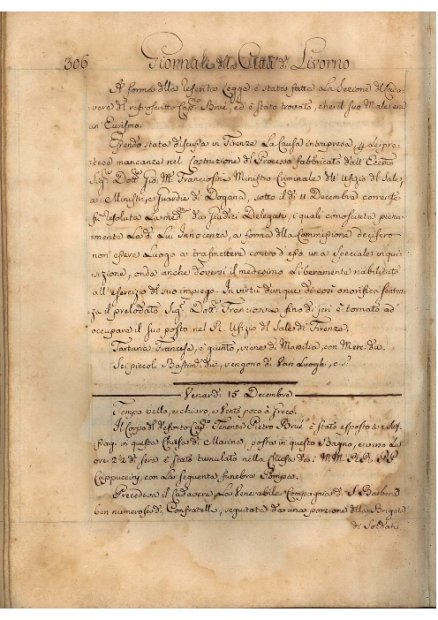 306 Giornale della Città di Livorno
A forma della referita Legge è stata fatta la Sezione del Cada
vere del retroscritto Cap. Bruè, ed è stato trovato, che il suo Male era
un
Essendo stata discussa in Firenze la Causa intrapresa, per le pre
tese mancanze nel Costruzione del Processo fabbricato dall'
Sig. Dott. Gio. M. Franceschini Ministro Criminale dell' Ufizio del Sale,
a Ministri, e Guardie di Dogana, sotto il dì 11 Decembre corrente
fù resoluta la med. da' Giudici Delegati, i quali conosciuta piena
mente la di Lui Innocenza, a forma della Commissione decisero
non esservi Luogo a trasmettere contro di esso una speciale inqui
sizione, onde anche doversi il medesimo liberamente riabilitato
all' esercizio del suo impiego. In virtù dunque di così onorifica senten
za il prelodato Sig. Dott. Franceschini fino di jeri è tornato ad
occupare il suo posto nel R. Ufizio del Sale di Firenze.
Tartana Francese, è giunta, viene di Marsilia, con Merc. div.
Sei piccoli Bastim. div. vengono di Van Luoghi, e
Venardì 15 Decembre
Tempo bello, e chiaro, e Vento poco a Greco.
Il Corpo del defonto Cap. Tenente Pietro Bruè è stato esposto a'
in questa Chiesa di Marina, posta in questo Bagno, e verso le
ore 22 di sera è stato tumulato nella Chiesa de' M. M. R. R. P. P.
Cappuccini, con la seguente funebre Pompa.
Precedeva il Cadavere la Venerabile Compagnia di S. Barbera
ben numerosa di Confratelli, seguitata da una porzione della Brigata
di Soldati